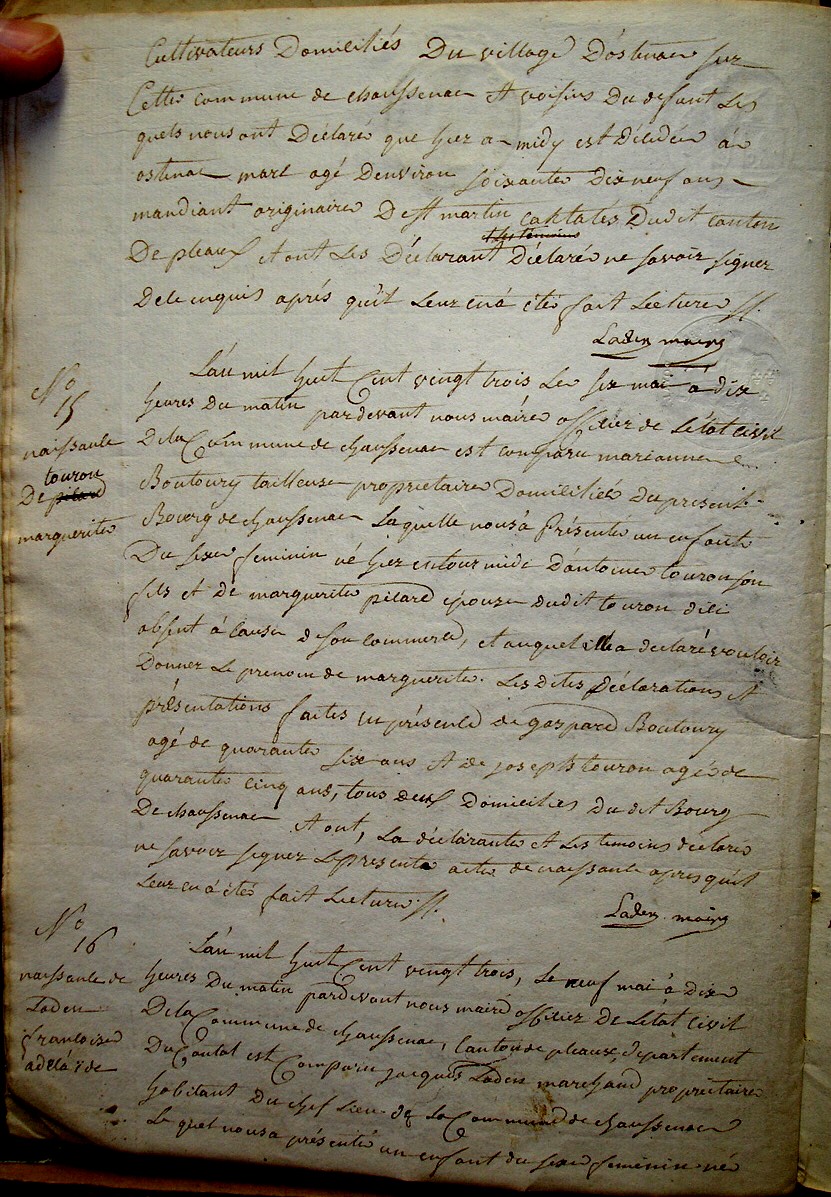 Cultivateurs Domiciliés Du village D'ostenac sur
Cette commune de chaussenac et voisins Du defunt Les
quels nous ont Déclaré que hier a midy est Décédé á
ostenac marc agé Denviron soixante Dix neuf ans
mandiant originaire De St martin cantalés Dudit canton
De pleaux et ont Les Déclarant Déclaré ne savoir signer
De ce enquis aprés qu'il Leur en á été fait Lecture //.
Laden maire
N°
15
naissance
touron
De pilard
marguerite
L'an mil huit Cent vingt trois Le six mai á dix
heures Du matin pardevant nous maire officier de L'état Civil
Dela Commune de chaussenac est comparu marianne
Boutoury tailleuse propriétaire Domiciliée Du present
Bourg de chaussenac Laquelle nous a Présenté un enfant
Du sexe feminin né hier D'antoine touron son
fils et de marguerite pilard épouse dudit touron
absent á Cause d son commerce, et auquel ella a declaré vouloir
Donner Le prenom de marguerite. Les dites Déclarations et
présentations faites en présence de gaspard Boutoury
agé de quarante six ans et de joseph touron agé de
quarante cinq ans, tous deux Domiciliés Du dit Bourg
De chaussenac et ont, La déclarante et Les temoins déclaré
ne savoir signer Le présent acte de naissance apres qu'il
Leur en á été fait Lecture //.
Laden maire
N°
16
naissance de
Laden
francoise
adélaïde
L'an mil huit Cent vingt trois, Le neuf mai á dix
heures Du matin pardevant nous maire officier De L'état Civil
Dela Commune de chaussenac, Canton de pleaux, département
Du Cantal est Comparu jacques Laden marchand propriétaire
habitant Du chef Lieu de La Commune de chaussenac
Le quel nous a présenté un enfant du sexe feminin née